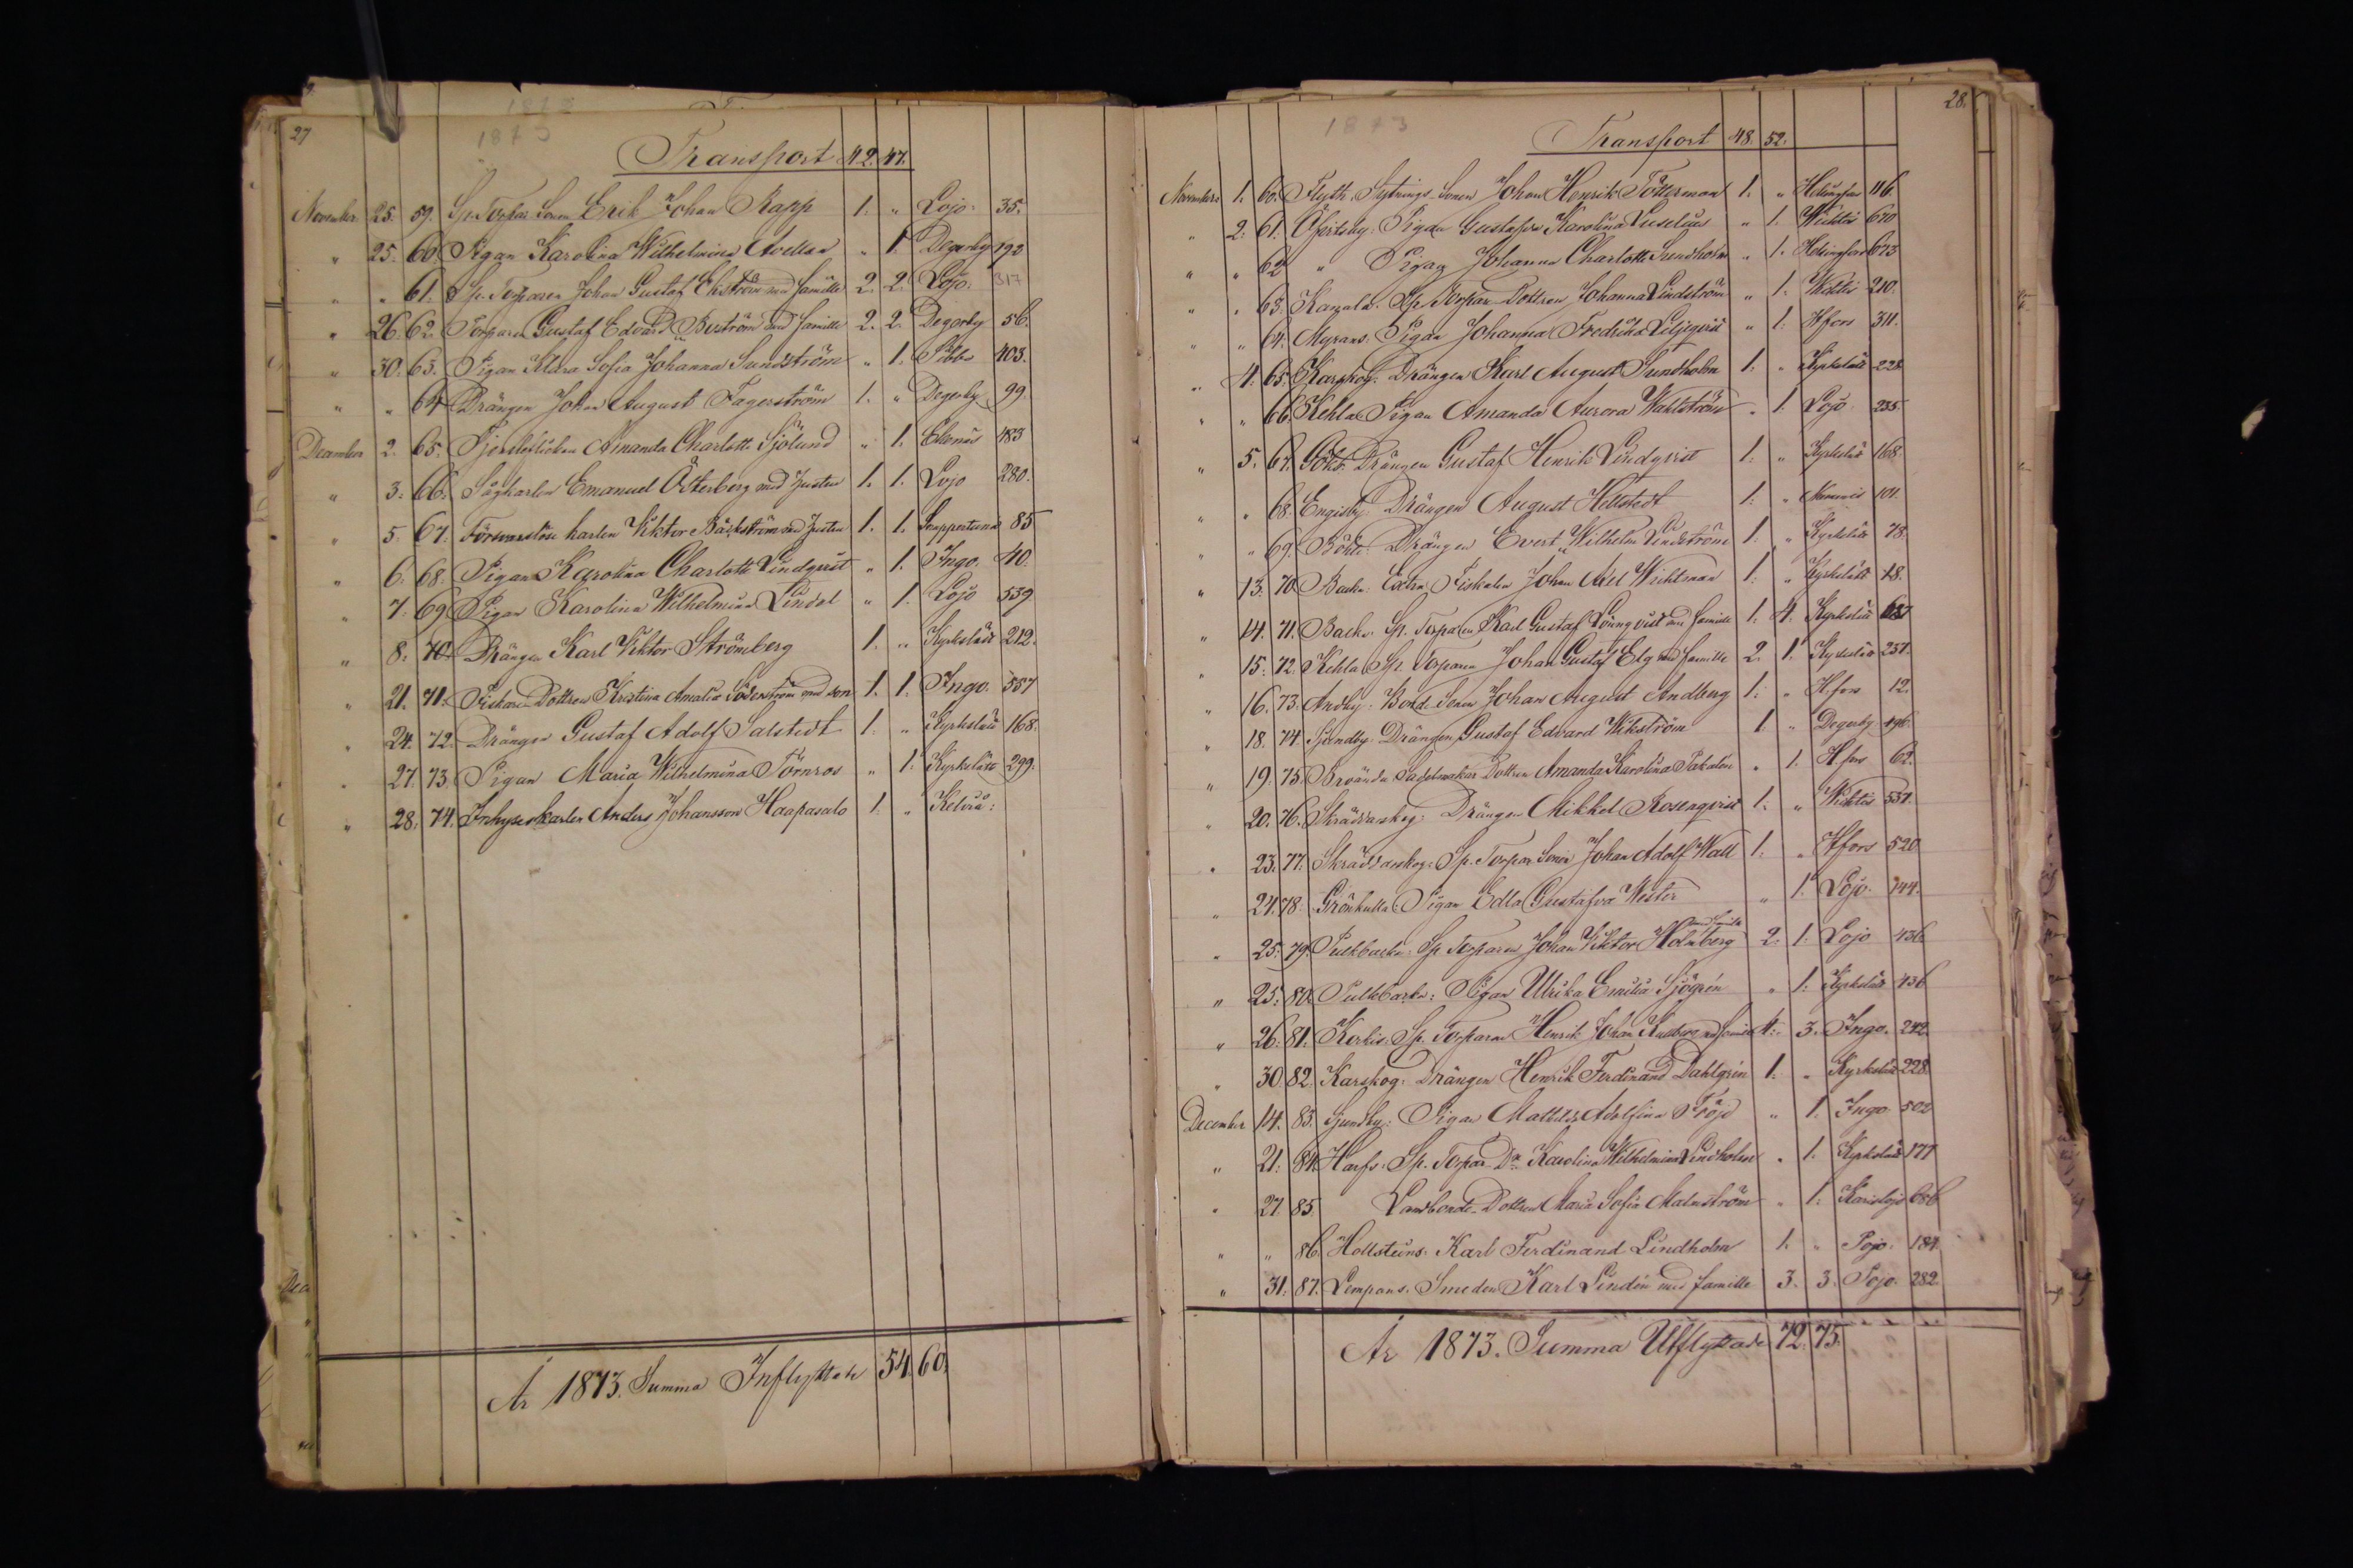 27
1873
Transport 42. 47.
November 25. 59. Sp. Torpar Sonen Erik Johan Rapp 1. " Lojo. 35.
" 25. 60. Pigan Karolina Wilhelmina Avellan " 1. Degerby 192
" " 61. Sp. Torparen Johan Gustaf Ekström med familie 2. 2. Lojo. 317
" 26. 62. Torparen Gustaf Edvard Boström med familie 2. 2. Degerby 56.
" 30. 63. Pigan Klara Sofia Johanna Sundström " 1. 403.
" " 64 Drängen Johan August Fagerström 1. " Degerby 99.
December 2. 65. Amanda Charlotta Sjölund " 1. Ekenäs 483
" 3. 66. Emanuel Österberg med hustru 1. 1. Lojo 280.
" 5. 67. Försvarslöse karlen Viktor Bäckström med hustru 1. 1. 85
" 6. 68. Pigan Karolina Charlotta Lindqvist " 1. Ingo. 40.
" 7. 69 Pigan Karolina Wilhelmina Lindel " 1. Lojo 539
" 8. 70. Drängen Karl Viktor Strömberg 1. " Kyrkslätt 212.
" 21. 71. Fiskare Dottren Kristina Amalia Söderström med son 1. 1. Ingo. 557
" 24. 72. Drängen Gustaf Adolf Salstedt 1. " Kyrkslätt 168.
" 27. 73. Pigan Maria Wilhelmina Törnros " 1. Kyrkslätt 299.
" 28. 74. Inhyseskarlen Anders Johansson Haapasalo 1. " Kelviå:
År 1873. Summa Inflyttade 54. 60.
28.
1873
Transport 48. 52.
November 1. 60. Johan Henrik Tötterman 1. " Helsingfors 116
" 2. 61. Pigan Gustafva Karolina 1. Wichtis 670
" " 62 " Pigan Johanna Charlotta Sundholm " 1. Helsingfors 673
" " 63. Sp. Torpare Dottren Johanna Lindström " 1. Wichtis 210.
" " 64. Myrans. Pigan Johanna Fredrika Liljeqvist " 1. Hfors 311.
" 4. 65. Karskog. Drängen Karl August Sundholm 1. " Kyrkslätt 228
" " 66. Kehla Pigan Amanda Aurora Wahlström " 1. Lojo. 235.
" 5. 67. Drängen Gustaf Henrik Lindqvist 1. " Kyrkslätt 168.
" " 68. Engisby. Drängen August Hellstedt 1. " 101.
" " 69. Böhle. Drängen Evert Wilhelm Lindström 1. " Kyrkslätt 78.
" 13. 70. Backa. Extra Fiskalen Johan Axel Wichtman 1. " Kyrkslätt 18.
" 14. 71. Backa. Sp. Torparen Karl Gustaf Lönnqvist med familie 1. 4. Kyrkslätt
" 15. 72. Kehla Sp. Torparen Johan Gustaf Elg med familie 2. 1. Kyrkslätt 251.
" 16. 73. Bonde Sonen Johan August Andberg 1. " Hfors 12.
" 18. 74 Sjundby. Drängen Gustaf Edvard Wikström 1. " Degerby 196.
" 19. 75. Sadelmakar Dottren Amanda Karolina " 1. Hfors 62.
" 20. 76. Skräddarskog. Drängen Mikkel Rosenqvist 1. " Wichtis 551.
" 23. 77. Skräddarskog. Sp. Torpar Sonen Johan Adolf Wall 1. " Hfors 520
" 24. 78. Grönkulla Pigan Edla Gustafva Wester " 1. Lojo. 144.
" 25. 79. Sp Torparen Johan Viktor Holmberg med familie 2. 1. Lojo 436
" 25. 80. Pigan Ulrika Emilia Sjögrén " 1. Kyrkslätt 436
" 26. 81. Sp. Torparen Henrik Johan Kullberg med familie 4. 3. Ingo. 242.
" 30 82. Karskog. Drängen Henrik Ferdinand Dahlgrén 1. " Kyrkslätt 228.
December 14. 83. Sjundby. Pigan Mathilda Adolfina Fröjd " 1. Ingo. 502
" 21. 84. Harfs. Sp. Torpar Dr Karolina Wilhelmina Lindholm " 1. Kyrkslätt 177
" 27. 85. Landbonde Dottren Maria Sofia Malmström " 1. Karislojo 686
" " 86. Hollsteins. Karl Ferdinand Lindholm 1. " Pojo. 184
" 31. 87. Lempans. Smeden Karl Lindén med familie 3. 3. Pojo. 282.
År 1873. Summa Utflyttade 72. 75.